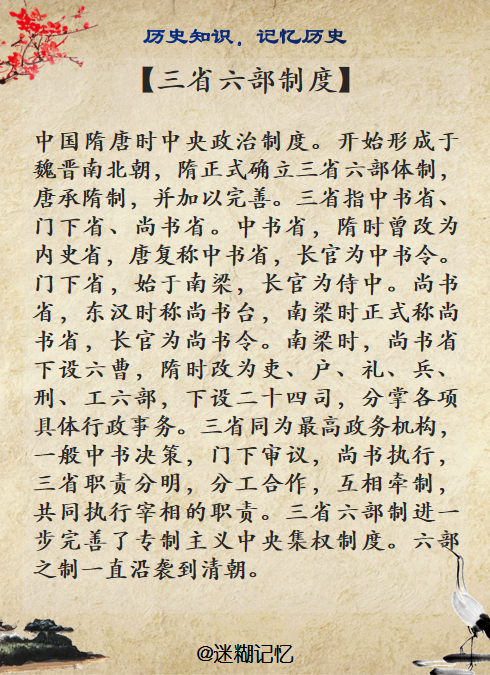 历史知识，记忆历史
【三省六部制度】
中国隋唐时中央政治制度。开始形成于
魏晋南北朝，隋正式确立三省六部体制，
唐承隋制，并加以完善。三省指中书省、
门下省、尚书省。中书省，隋时曾改为
内史省，唐复称中书省，长官为中书令。
门下省，始于南梁，长官为侍中。尚书
省，东汉时称尚书台，南梁时正式称尚
书省，长官为尚书令。南梁时，尚书省
下设六曹，隋时改为吏、户、礼、兵、
刑、工六部，下设二十四司，分掌各项
具体行政事务。三省同为最高政务机构，
一般中书决策，门下审议，尚书执行，
三省职责分明，分工合作，互相牵制，
共同执行宰相的职责。三省六部制进一
步完善了专制主义中央集权制度。六部
之制一直沿袭到清朝。
@迷糊记忆